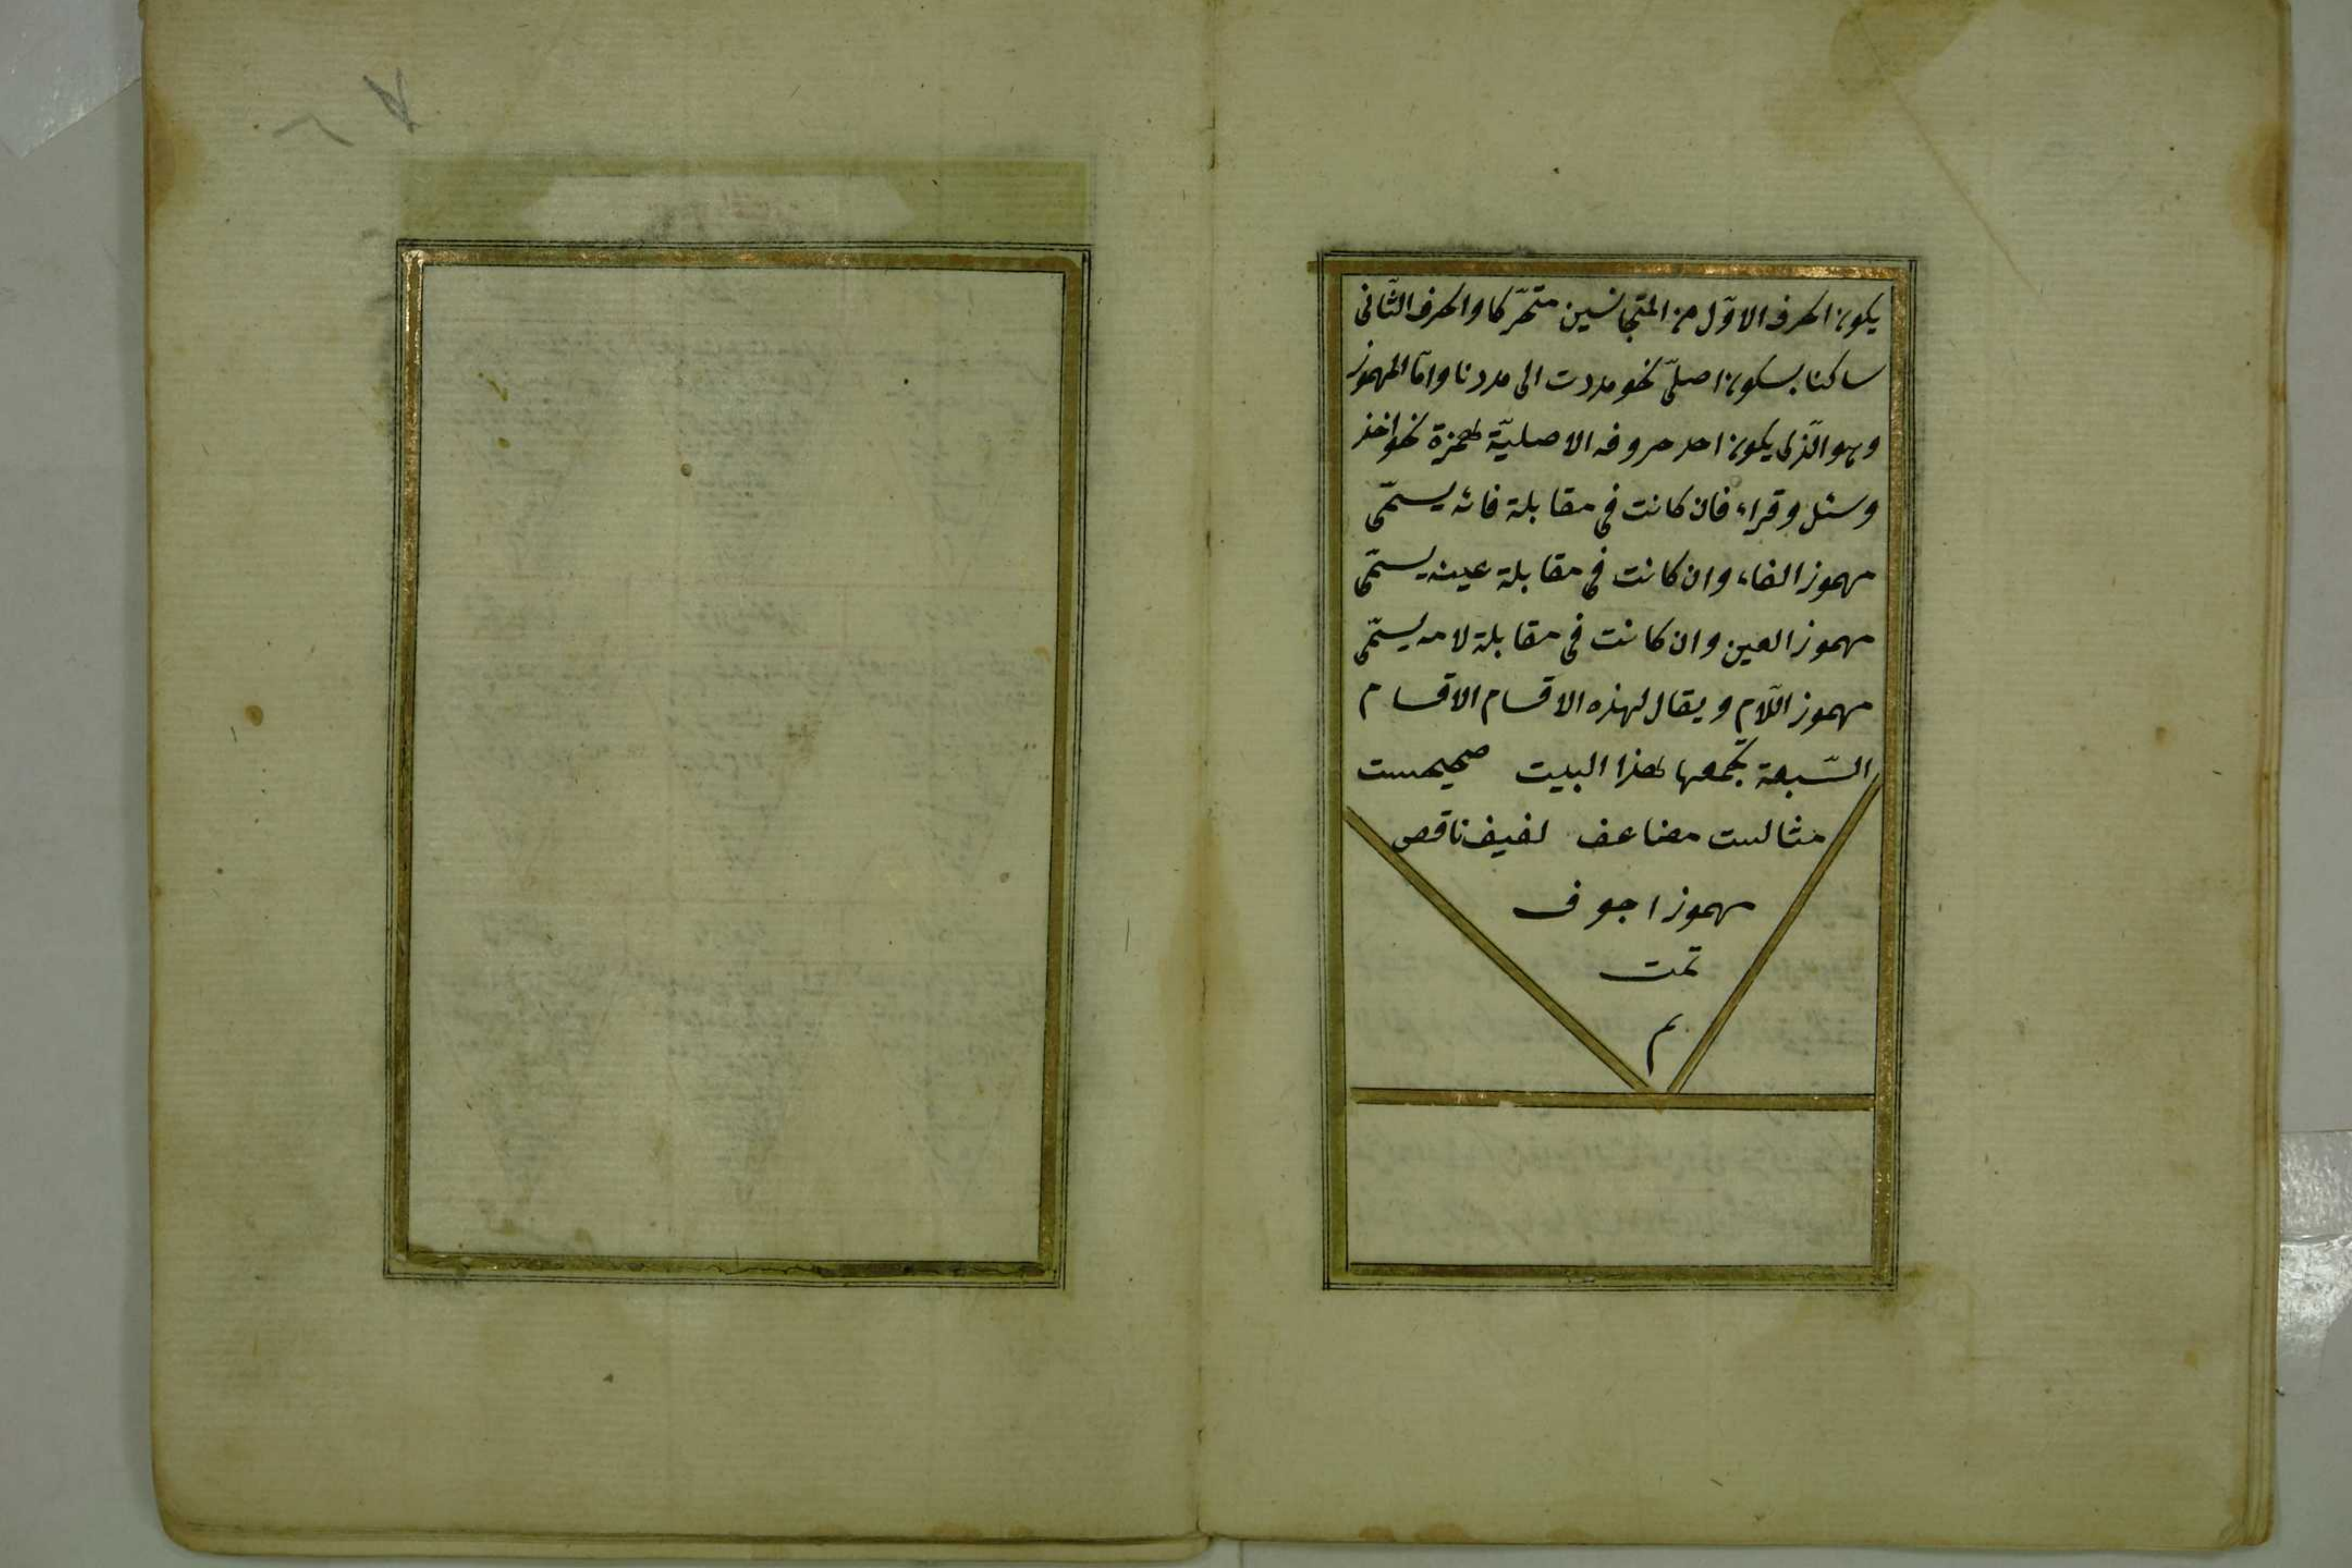 يكون الحرف الاوّل من المتجانسين متحرّكا والحرف الثّانى
ساكنا بسكون اصلىّ نحو مددت الى مددنا وامّا المهموز
وهو الّذى يكون احد حروفه الاصليّة همزة نحو اخذ
وسئل وقراء فان كانت فى مقابلة فائه يسمّى
مهموز الفاء وان كانت فى مقابلة عينه يسمّى
مهموز العين وان كانت فى مقابلة لامه يسمّى
مهموز اللّام ويقال لهذه الاقسام الاقسام
السّبعة يجمعها هذا البيت صحيحست
مثالست مضاعف لفيف ناقص
مهموز اجوف
تمت
م